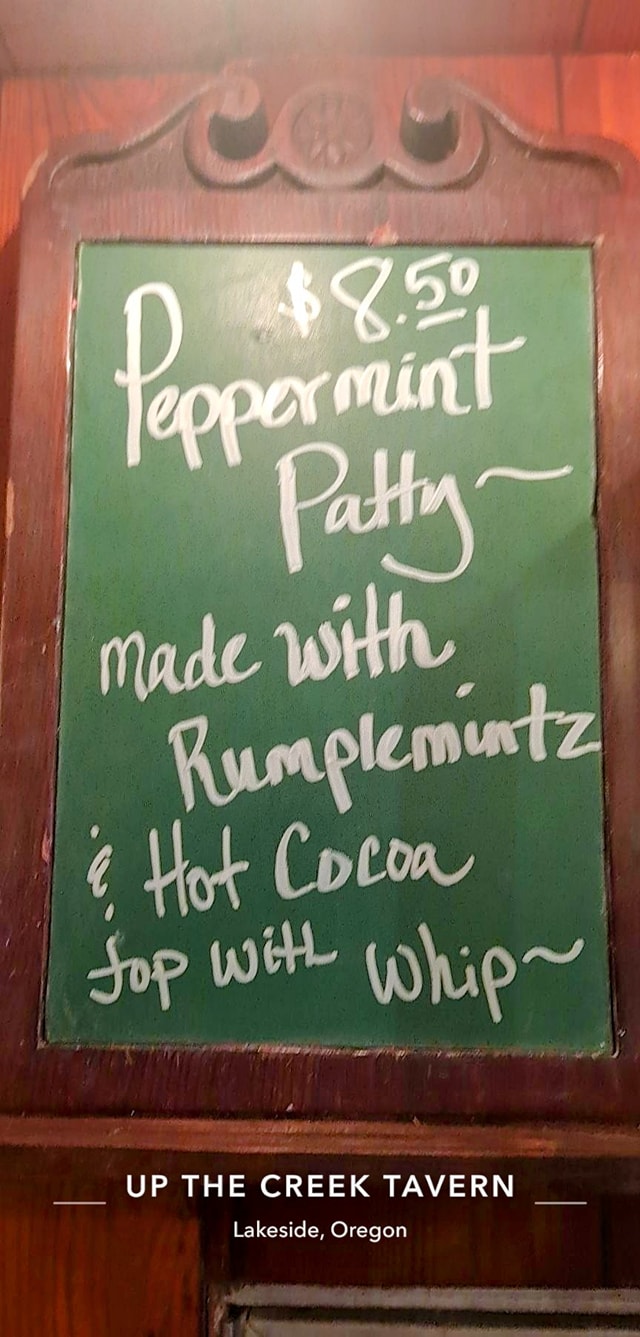 $8.50
Peppermint
Patty~
made with
Rumplemintz
& Hot Cocoa
top with Whip~
UP THE CREEK TAVERN
Lakeside, Oregon